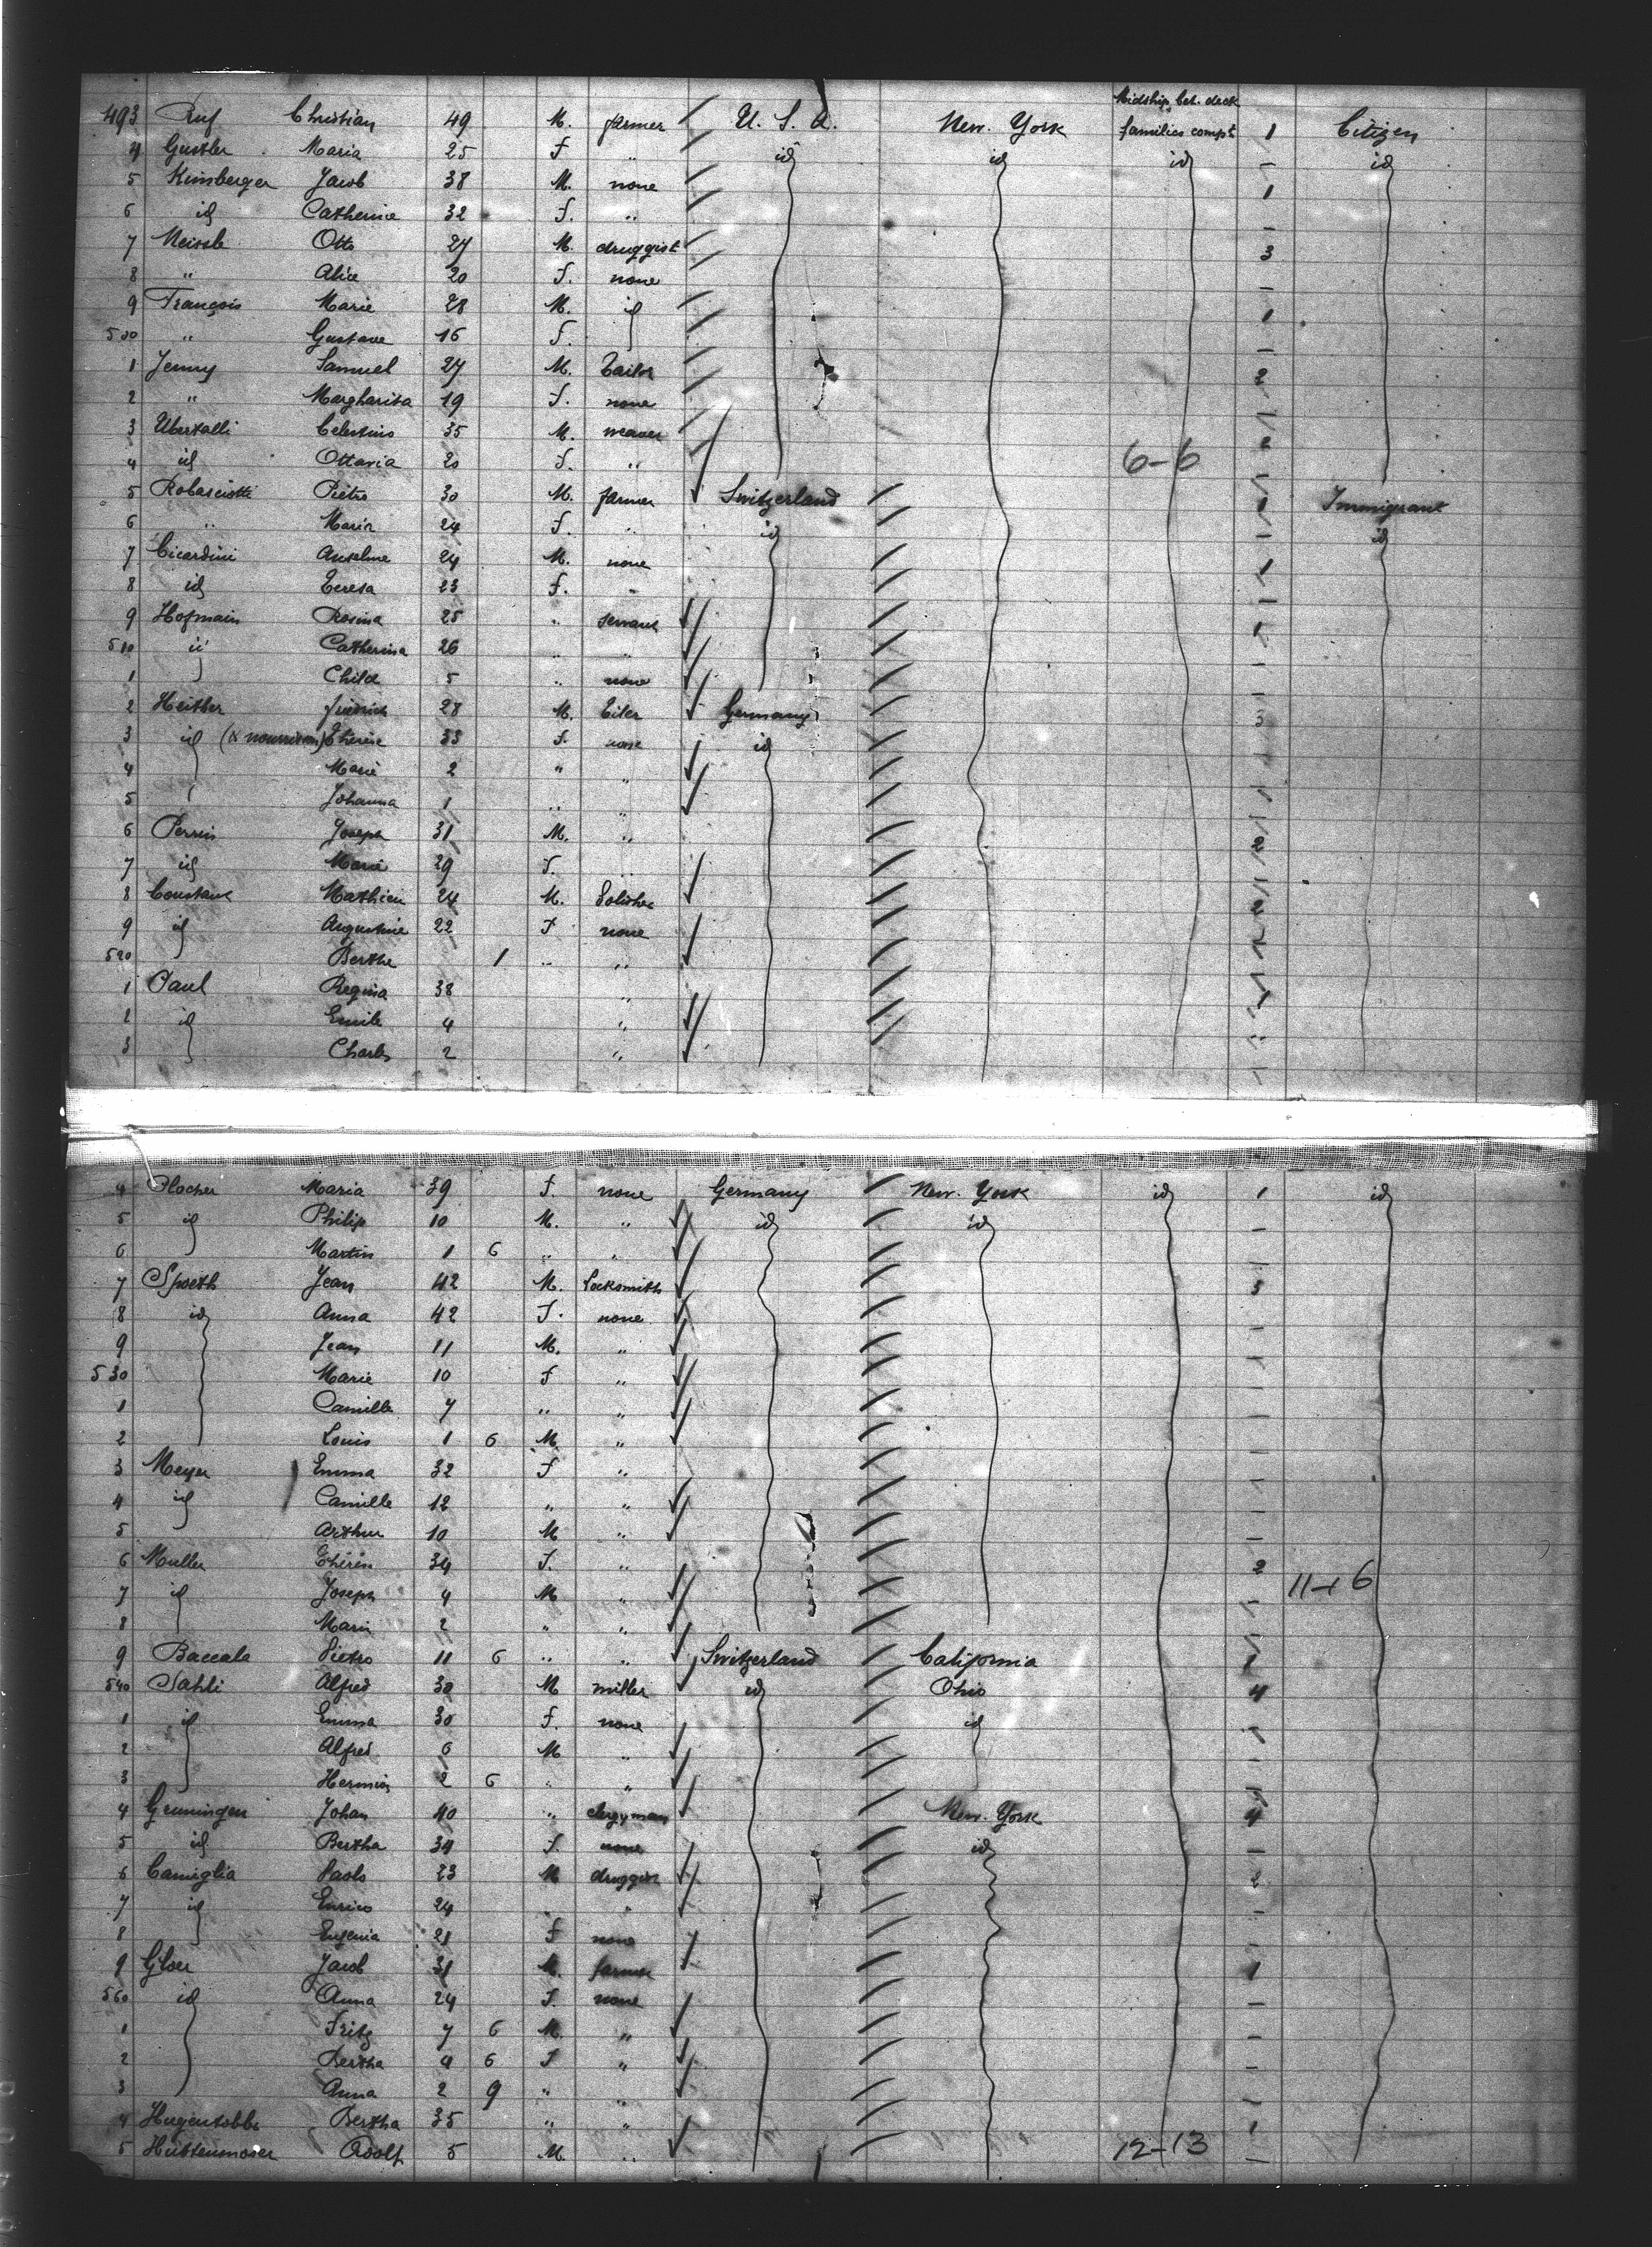 Midship. bet. deck
493 Ruf Christian 49 M. farmer U. S. A. New. York families compt 1 Citizen
4 Gustler Maria 25 F " id id id - id
5 Kinsberger Jacob 38 M. none 1
6 id Catherine 32 F. " -
7 Meissle Otto 27 M. druggist 3
8 " Alice 20 F. none -
9 François Marie 28 M. id 1
500 " Gustave 16 F. -
1 Jenny Samuel 27 M. Tailor 2
2 " Margharita 19 F. none
3 Ubertalli Celestino 35 M. weaver 2
4 id Ottavia 20 F. " 6-6
5 Robasciotti Pietro 30 M. farmer Switzerland 1 Immigrant
6 " Maria 24 F. " id - id
7 Cicardini Anselme 24 M. none 1
8 id Teresa 23 F. "
9 Hofmain Rosina 25 " servant 1
510 id Catherina 26 " " -
1 Child 5 " none -
2 Heitber 28 M. Germany 3
3 id (& nourrisson) Therese 33 F. none id
4 Marie 2 " "
5 Johanna 1 " "
6 Perrin Joseph 31 M. " 2
7 id Marie 29 F. "
8 Constant Mathieu 24 M. 2
9 id Augustine 22 F none
520 Berthe 1 " "
1 Paul Regina 38 "
2 id Emile 4 "
3 Charles 2 "
4 Plocher Maria 39 F. none Germany New. York id 1 id
5 id Philip 10 M. " id id -
6 Martin 1 6 " "
7 Spoeth Jean 42 M. Locksmith 5
8 id Anna 42 F. none -
9 Jean 11 M. " -
530 Marie 10 F " -
1 Camille 7 " " -
2 Louis 1 6 M. " -
3 Meyer Emma 32 F "
4 id Camille 12 " " -
5 Arthur 10 M " -
6 Muller Thérèse 34 F. " 2
7 id Joseph 4 M " - 11-16
8 Marie 2 " "
9 Baccala Pietro 11 6 " " Switzerland California 1
540 Sahli Alfred 30 M miller id Ohio 4
1 id Emma 30 F. none id
2 Alfred 6 M "
3 Hermine 2 6 " "
4 Gruningen Johan 40 " clergyman New. York 4
5 id Bertha 34 F. none id -
6 Camiglia Paolo 23 M druggist 2
7 id Enrico 24 " " -
8 Eugenia 21 F none
9 Gloer Jacob 31 M. farmer 1
560 id Anna 24 F. none -
1 Fritz 7 6 M. " -
2 Bertha 4 6 F " -
3 Anna 2 9 " " -
4 Hugentobler Bertha 35 " "
5 Huttenmoser Adolf 5 M. " 12-13 -